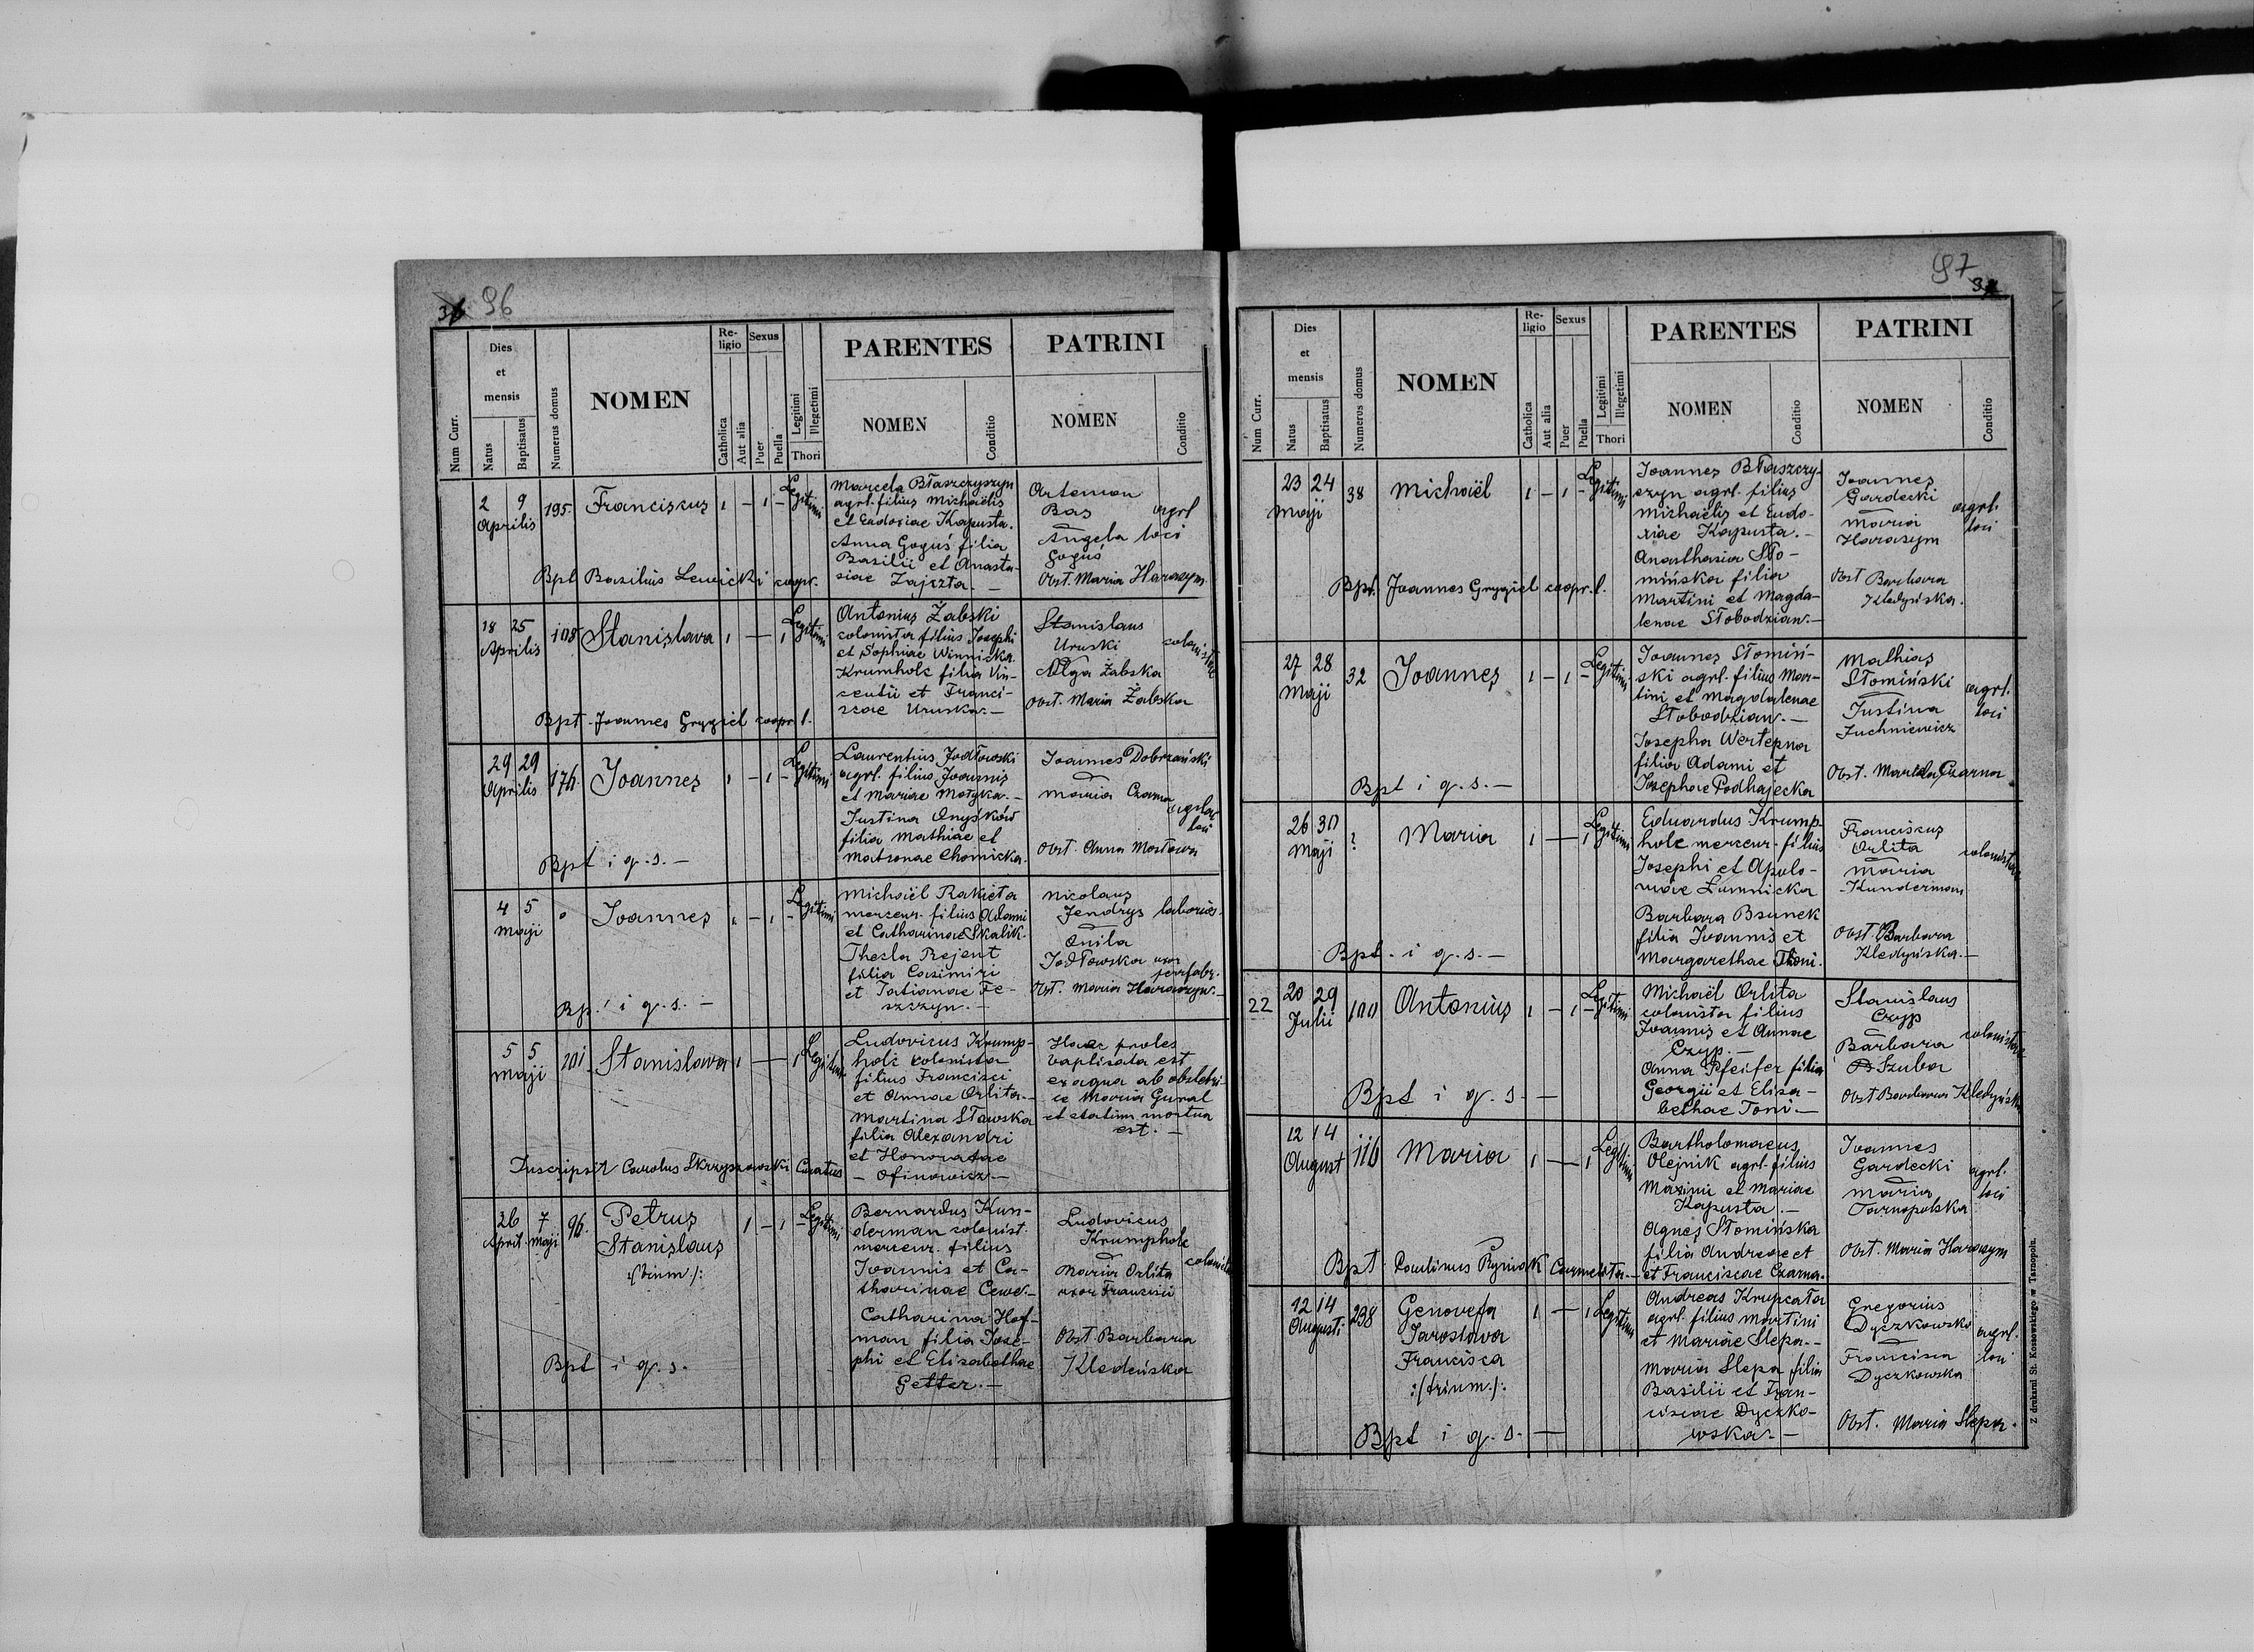 36 96
Num Curr.
Dies
et
mensis
Natus
Baptisatus
Numerus domus
NOMEN
Re-
ligio
Catholica
Aut alia
Sexus
Puer
Puella
Legitimi
Illegetimi
Thori
PARENTES
NOMEN
Conditio
PATRINI
NOMEN
Conditio
2 9
Aprilis
195.
Franciscus
1 — 1 —
Legitimi
Marcela Błaszczyszyn
agrl. filius Michaëlis
et Eudoxiae Kapusta.
Anna Goguś filia
Basilii et Anasta-
siae Zajczta. —
Artemon
Bas
Angela
Goguś
Obst. Maria Harasym
agrl
loci
Bpt Basilius Lewicki coopr.
18 25
Aprilis
108
Stanislava
1 — 1
Legitimi
Antonius Żabski
colonista filius Josephi
et Sophiae Winnicka.
Krumholc filia Vin-
centii et Franci-
scae Uruska. —
Stanislaus
Uruski
Olga Żabska
Obst. Maria Żabska
colonistae
Bpt. Joannes Grygiel coopr. l.
29 29
Aprilis
176.
Joannes
1 — 1 —
Legitimi
Laurentius Jodłowski
agrl. filius Joannis
et Mariae Matyka. —
Justina Onyśków
filia Mathiae et
Matronae Chomicka.
Joannes Dobrzański
Maria Czarna
agrlae
loci
Obst. Anna Mostowa
Bpt i q. s. —
4 5
Maji
Joannes
1 — 1 —
Legitimi
Michaël Rakieta
mercen. filius Adami
et Catharinae Skalik.
Thecla Rejent
filia Casimiri
et Tatianae Fe-
szczyn. —
Nicolaus
Jendrys laborios.
Onila
Jodłowska uxor
Obst. Maria Harasym. —
Bpt i q. s. —
5 5
Maji
201
Stanislawa
1 — 1
Legitimi
Ludovicus Krump-
holc colonista
filius Francisci
et Annae Orlita. —
Martina Stawska
filia Alexandri
et Honoratae
— Ofinowicz —
Haec proles
baptisata est
ex aqua ab obstetri-
ce Maria Gural
et statim mortua
est. —
Inscripsit Carolus Skrzyszowski Curatus
26 7
April. Maji
96.
Petrus
Stanislaus
:/binum/:
1 — 1 —
Legitimi
Bernardus Kun-
derman colonist.
mercen. filius
Joannis et Ca-
tharinae Cewe. —
Catharina Hof-
man filia Jose-
phi et Elisabethae
Getter. —
Ludovicus
Krumpholc
Maria Orlita
uxor Francisci
Obst. Barbara
Kledeńska
Bpt i q. s.
97
37
Num Curr.
Dies
et
mensis
Natus
Baptisatus
Numerus domus
NOMEN
Re-
ligio
Catholica
Aut alia
Sexus
Puer
Puella
Legitimi
Illegetimi
Thori
PARENTES
NOMEN
Conditio
PATRINI
NOMEN
Conditio
23 24
Maji
38
Michaël
1 — 1 —
Legitimi
Joannes Błaszczy-
szyn agrl. filius
Michaelis et Eudo-
xiae Kapusta. —
Anasthasia Sło-
mińska filia
Martini et Magda-
lenae Słobodzian. —
Joannes
Gardecki
Maria
Harasym
Obst Barbara
Kledyńska.
agrl.
loci
Bpt. Joannes Grygiel coopr. l.
27 28
Maji
32
Joannes
1 — 1 —
Legitimi
Joannes Słomiń-
ski agrl. filius Mar-
tini et Magdalenae
Słobodzian. —
Josepha Wertepna
filia Adami et
Josephae Podhajecka
Mathias
Słomiński
Justina
Juchniewicz
agrl.
loci
Bpt i q. s. —
26 30
Maji
?
Maria
1 — 1
Legitimi
Eduardus Krump-
holc mercen. filius
Josephi et Apolo-
niae Łumnicka
Barbara Bsunek
filia Joannis et
Margarethae Thoni.
Franciscus
Orlita
Maria
Kunderman
Obst. Barbara
Kledyńska. —
colonistae
Bpt. i q. s. —
22
20 29
Julii
100
Antonius
1 — 1 —
Legitimi
Michaël Orlita
colonista filius
Joannis et Annae
Czyp. —
Anna Pfeifer filia
Georgii et Elisa-
bethae Toni —
Stanislaus
Czyp
Barbara
Szuba
Obst Barbara Kledyńska
colonistae
Bpt i q. s. —
12 14
August
116
Maria
1 — 1
Legitimi
Bartholomaeus
Olejnik agrl. filius
Maximi et Mariae
Kapusta. —
Agnes Słomińska
filia Andreae et
et Franciscae Czarna.
Joannes
Gardecki
Maria
Tarnopolska
Obst. Maria Harasym
agrl.
loci
Bpt. Paulinus Ryniak Carmelita. —
12 14
Augusti
238
Genovefa
Jaroslava
Francisca
:/trium./:
1 — 1
Legitimi
Andreas Krupcała
agrl. filius Martini
et Mariae Slepa. —
Maria Slepa filia
Basilii et Fran-
ciscae Dyczko-
wska. —
Gregorius
Dyczkowski
Francisca
Dyczkowska
Obst. Maria Slepa.
agrl.
loci
Bpt i q. s. —
Z drukarni St. Kossowskiego w Tarnopolu.